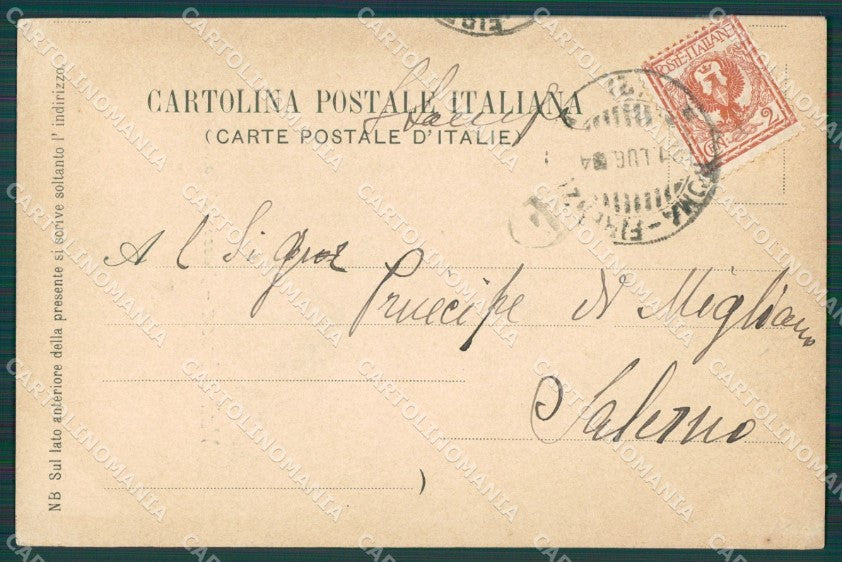 CARTOLINA POSTALE ITALIANA
(CARTE POSTALE D'ITALIE)
Stampe
POSTE·ITALIANE
CENT. 2
ROMA-FIRENZE
LUG. 04
Al Sigr
Principe di Migliano
Salerno
NB Sul lato anteriore della presente si scrive soltanto l'indirizzo.
CARTOLINOMANIA